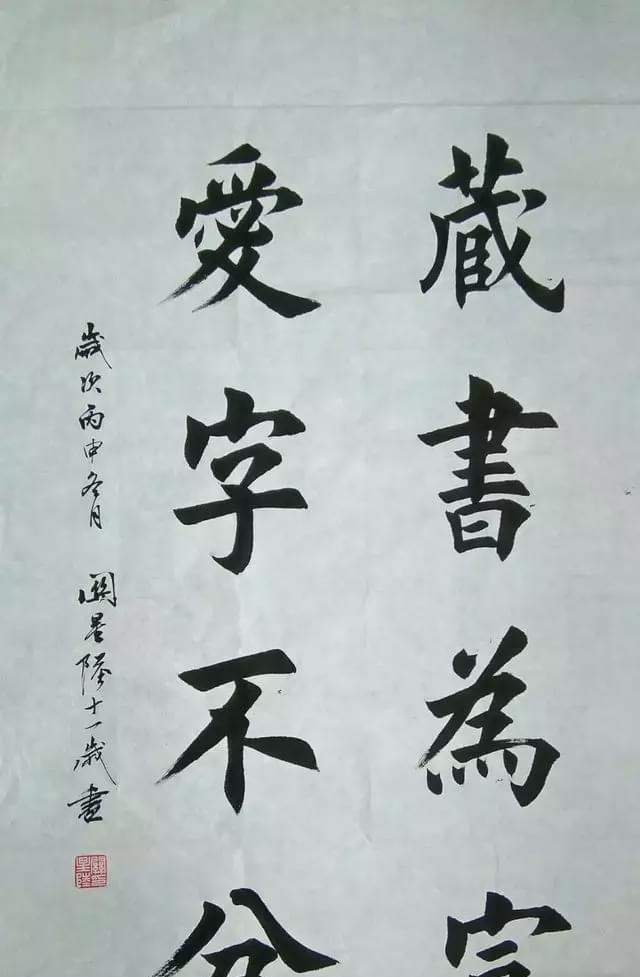 藏書為
愛字不分
歲次丙申冬月 關星陸十一歲書